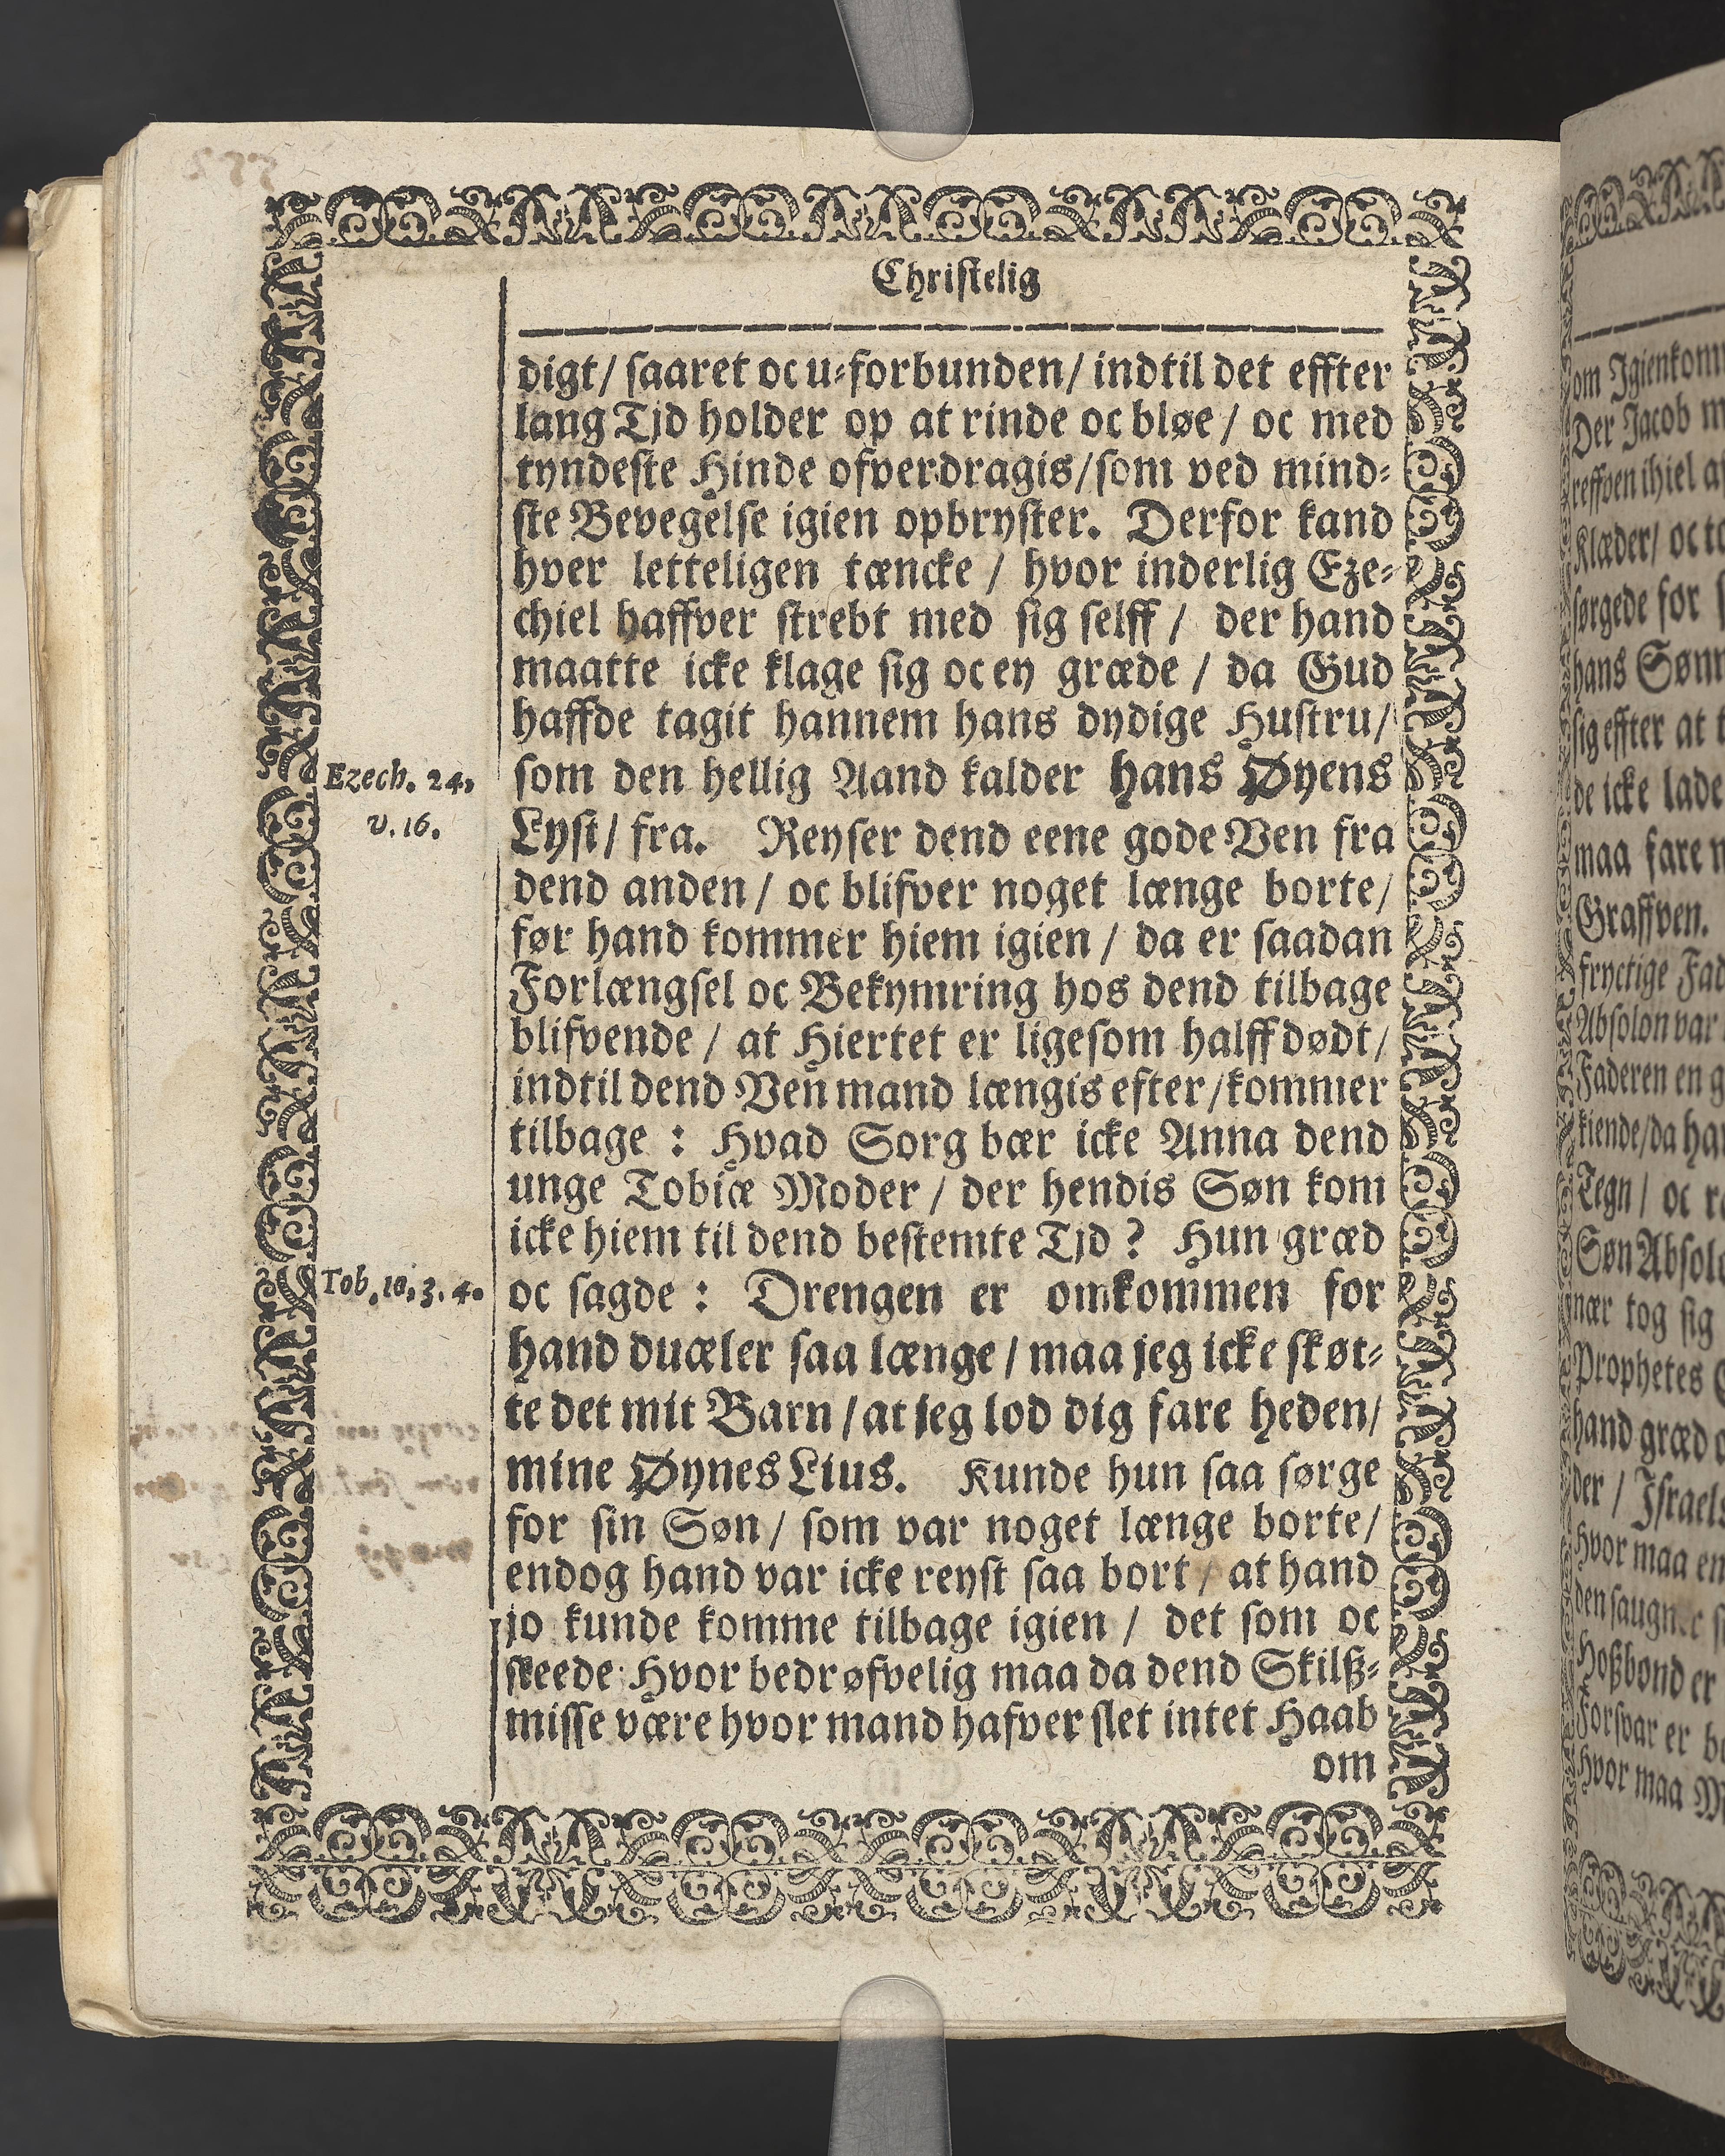 Christelig
digt/ saaret oc u-forbunden/ indtil det effter
lang Tjd holder op at rinde oc bløe/ oc med
tyndeste Hinde ofverdragis/som ved mind-
ste Bevegelse igien opbryster. Derfor kand
hver letteligen tæncke / hvor inderlig Eze-
chiel haffver strebt med sig selff / der hand
maatte icke klage sig oc ey græde / da Gud
haffde tagit hannem hans dydige Hustru/
Ezech. 24,
v. 16.
som den hellig Aand kalder hans Øyens
Lyst/ fra. Reyser dend eene gode Ven fra
dend anden/ oc blifver noget længe borte/
før hand kommer hiem igien / da er saadan
Forlængsel oc Bekymring hos dend tilbage
blifvende / at Hiertet er ligesom halff dødt/
indtil dend Ven mand længis efter/kommer
tilbage : Hvad Sorg bær icke Anna dend
unge Tobiæ Moder / der hendis Søn kom
icke hiem til dend bestemte Tjd ? Hun græd
Tob. 10, 3. 4.
oc sagde : Drengen er omkommen for
hand duæler saa længe / maa jeg icke skøt-
te det mit Barn / at jeg lod dig fare heden/
mine Øynes Lius. Kunde hun saa sørge
for sin Søn/ som var noget længe borte/
endog hand var icke reyst saa bort / at hand
jo kunde komme tilbage igien / det som oc
skeede: Hvor bedrøfvelig maa da dend Skilß-
misse være hvor mand hafver slet intet Haab
om
om
Der Jacob
Klæder/ oc
sørgede for
hans
sig effter at
de icke lade
maa fare
Graffven.
Absolon var
Faderen en
kiende/da
Tegn / oc
Søn
tog sig
Prophetes
hand græd
der /
hvor maa
er
Forsvar er
hvor maa